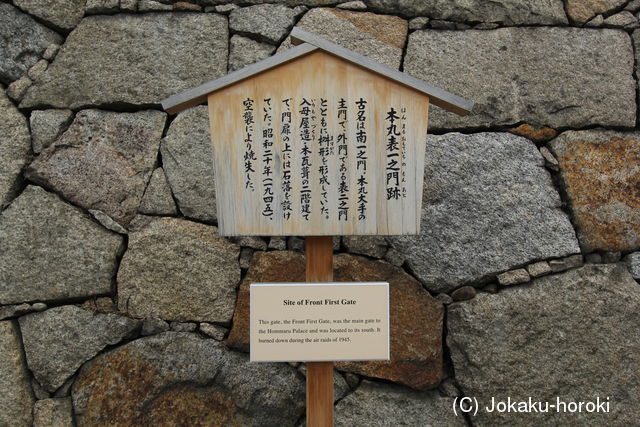 本丸表一之門跡
ほん まる おもていち の もん あと
古名は南一之門。本丸大手の
主門で、外門である表二之門
とともに枡形を形成していた。
ますがた
入母屋造・本瓦葺の二階建て
いりもやづくり
で、門扉の上には石落を設け
ていた。昭和二十年（一九四五）、
空襲により焼失した。
Site of Front First Gate
This gate, the Front First Gate, was the main gate to
the Hommaru Palace and was located to its south. It
burned down during the air raids of 1945.
(C) Jokaku-horoki